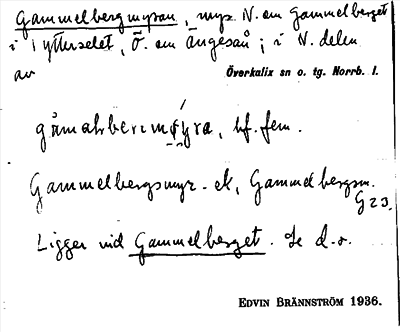 Gammelbergmyran, myr N. om Gammelberget
i Ytterselet, Ö. om Ängesån; i N. delen
av Överkalix sn o. tg. Norrb. l.
bf. fem.
Gammelbergsmyr-ek, Gammelbergsm.
G 23.
Ligger vid Gammelberget. Se d.o.
EDVIN BRÄNNSTRÖM 1936.